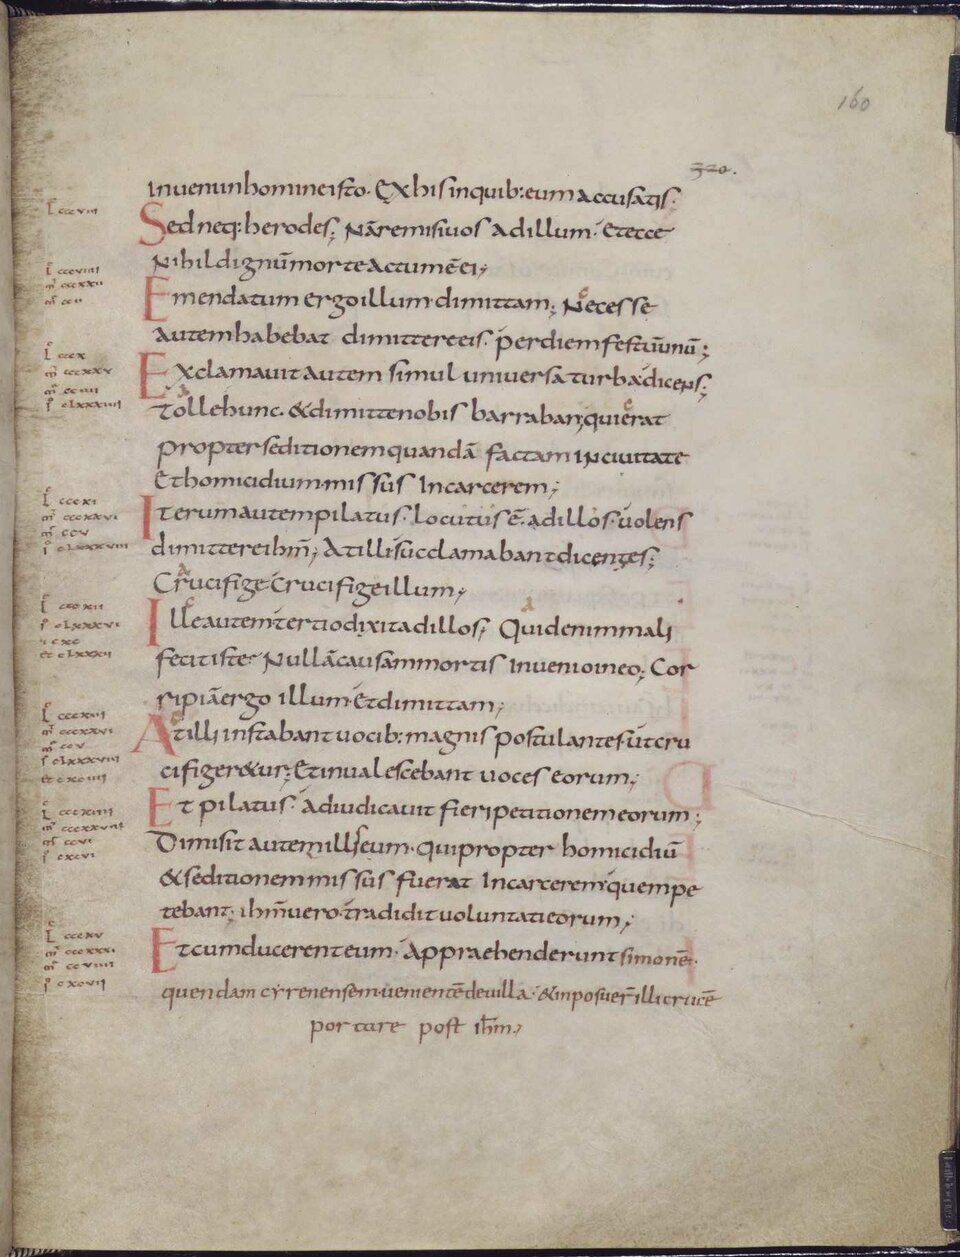 160
320.
inveni in homine isto. Ex his in quib: eum accusatis.
L cccviii
Sed neq: herodes; Nā remisi uos ad illum. Et ecce
Nihil dignū morte actum ē ei;
L cccviiii
Emendatum ergo illum dimittam; Necesse
autem habebat dimittere eis. per diem festū unū;
L cccx
Exclamavit autem simul universa turba dicens;
Tolle hunc. & dimitte nobis barraban; qui erat
propter seditionem quandā factam in civitate
Et homicidium missus In carcerem;
L cccxi
Iterum autem pilatus. locutus ē. ad illos. uolens
dimittere ihm̄; At illi succlamabant dicentes;
Crucifige Crucifige illum;
L cccxii
Ille autem tertio dixit ad illos; Quid enim mali
fecit iste. Nullā causam mortis Invenio in eo; Cor
ripiā ergo illum. Et dimittam;
L cccxiii
At illi instabant uocib: magnis postulantes. ut cru
cifiger&ur; Et invalescebant uoces eorum;
L cccxiiii
Et pilatus. adiudicavit fieri petitionem eorum;
Dimisit autem illis eum. qui propter homicidiū
& seditionem missus fuerat In carcerem. quem pe
tebant; ihm̄ uero. tradidit uoluntati eorum;
L cccxv
Et cum ducerent eum. Appraehenderunt simonē.
quendam cyrenensem uenientē de uilla. & inposuer̄ illi crucē
portare post ihm̄;